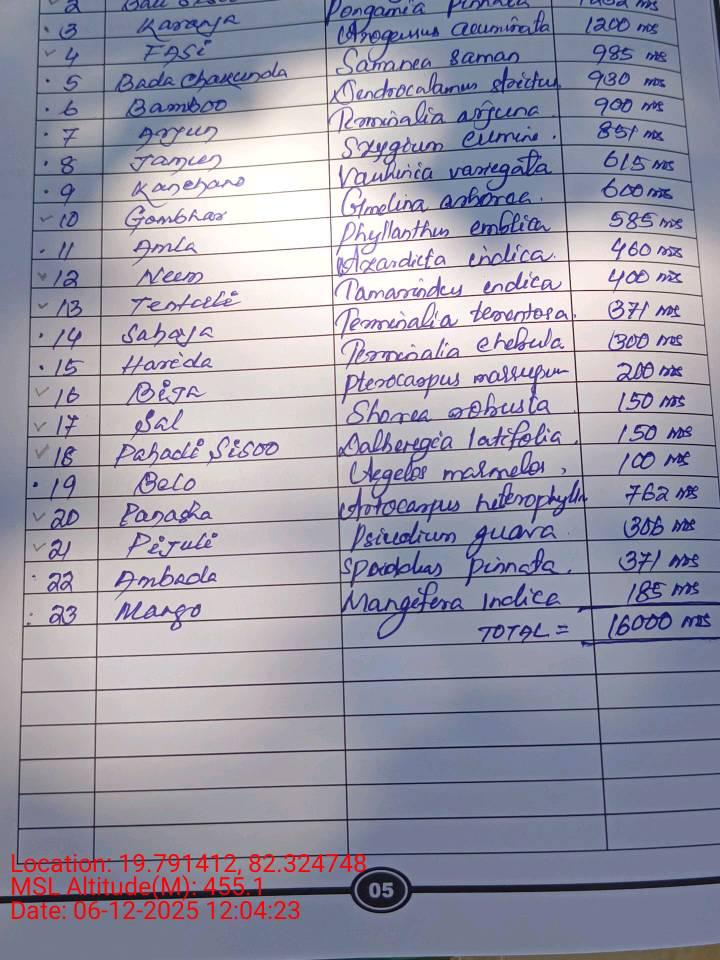 3 Karanja Pongamia Pinnata
4 FASi Anogenssus acuminata 1200 nos
5 Bada chakunda Samanea saman 985 nos
6 Bamboo Dendrocalamus strictus 930 nos
7 Arjun Terminalia arjuna 900 nos
8 Jamun Syzygium cumini. 851 nos
9 Kanchano Vauhinia variegata 615 nos
10 Gombhar Gmelina arborea. 600 nos
11 Amla Phyllanthus emblica 585 nos
12 Neem Azardicta indica. 460 nos
13 Tentuli Tamarindus indica 400 nos
14 Sahaja Terminalia tomentosa. 371 nos
15 Harida Terminalia chebula 300 nos
16 BiJA Pterocarpus marsupium 200 nos
17 Sal Shorea robusta 150 nos
18 Pahadi Sisoo Dalberegia latifolia. 150 nos
19 Belo Aegelos marmelos, 100 nos
20 Panasha Artocarpus heterophylla 762 nos
21 Pijuli Psiudium guava 306 nos
22 Ambada Spondias pinnata. 371 nos
23 Mango Mangifera indica 185 nos
TOTAL = 16000 nos
05
Location: 19.791412, 82.324748
MSL Altitude(M): 455.1
Date: 06-12-2025 12:04:23